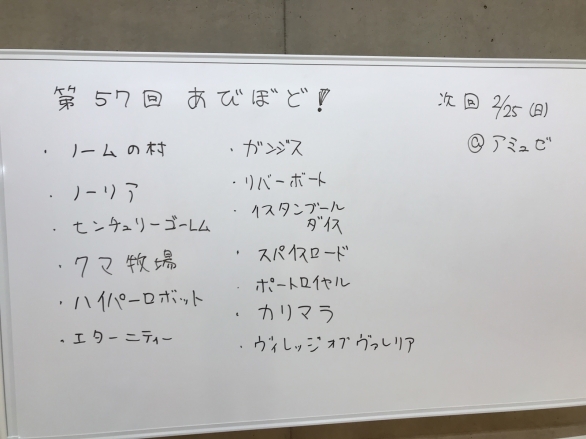 第57回 あびぼど!
次回 2/25(日)
@アミュゼ
・ノームの村
・ノーリア
・センチュリーゴーレム
・クマ牧場
・ハイパーロボット
・エターニティー
・ガンジス
・リバーボート
・イスタンブール
ダイス
・スパイスロード
・ポートロイヤル
・カリマラ
・ヴィレッジオブヴァレリア